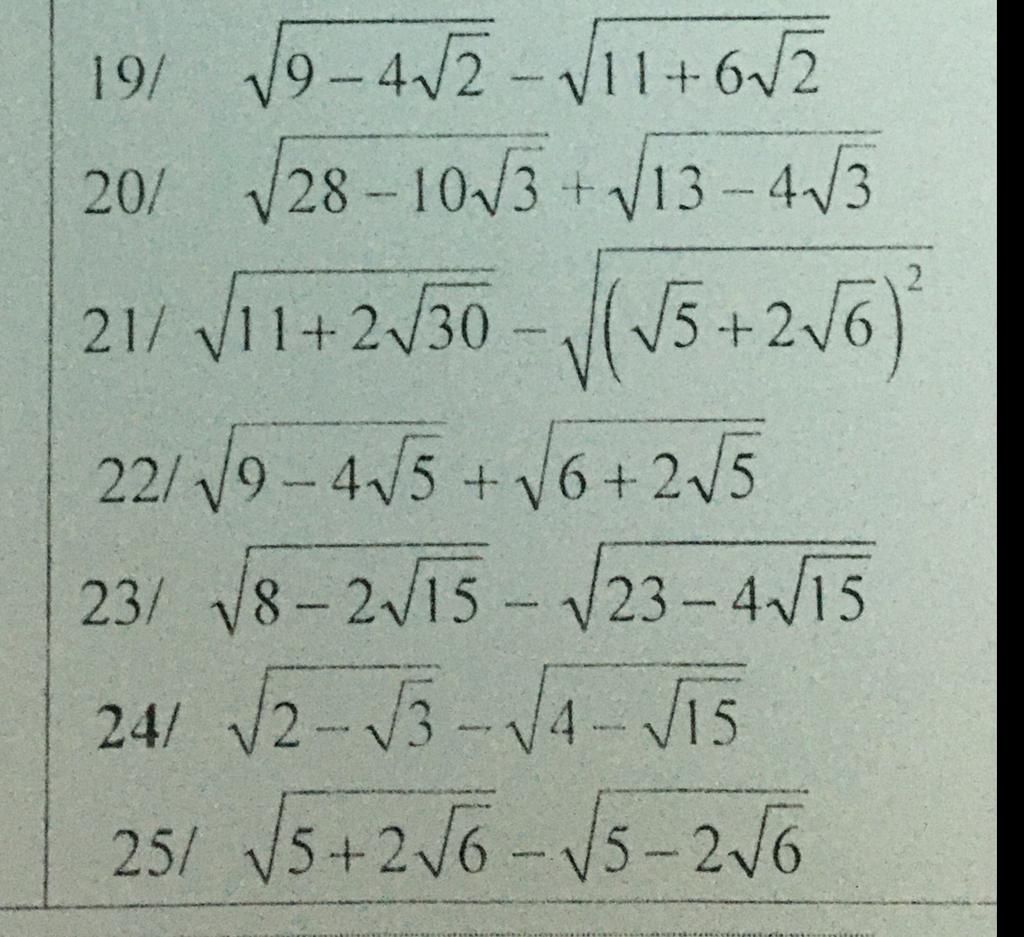 19/ √(9 − 4√2) − √(11 + 6√2)
20/ √(28 − 10√3) + √(13 − 4√3)
21/ √(11 + 2√30) − √((√5 + 2√6)²)
22/ √(9 − 4√5) + √(6 + 2√5)
23/ √(8 − 2√15) − √(23 − 4√15)
24/ √(2 − √3) − √(4 − √15)
25/ √(5 + 2√6) − √(5 − 2√6)